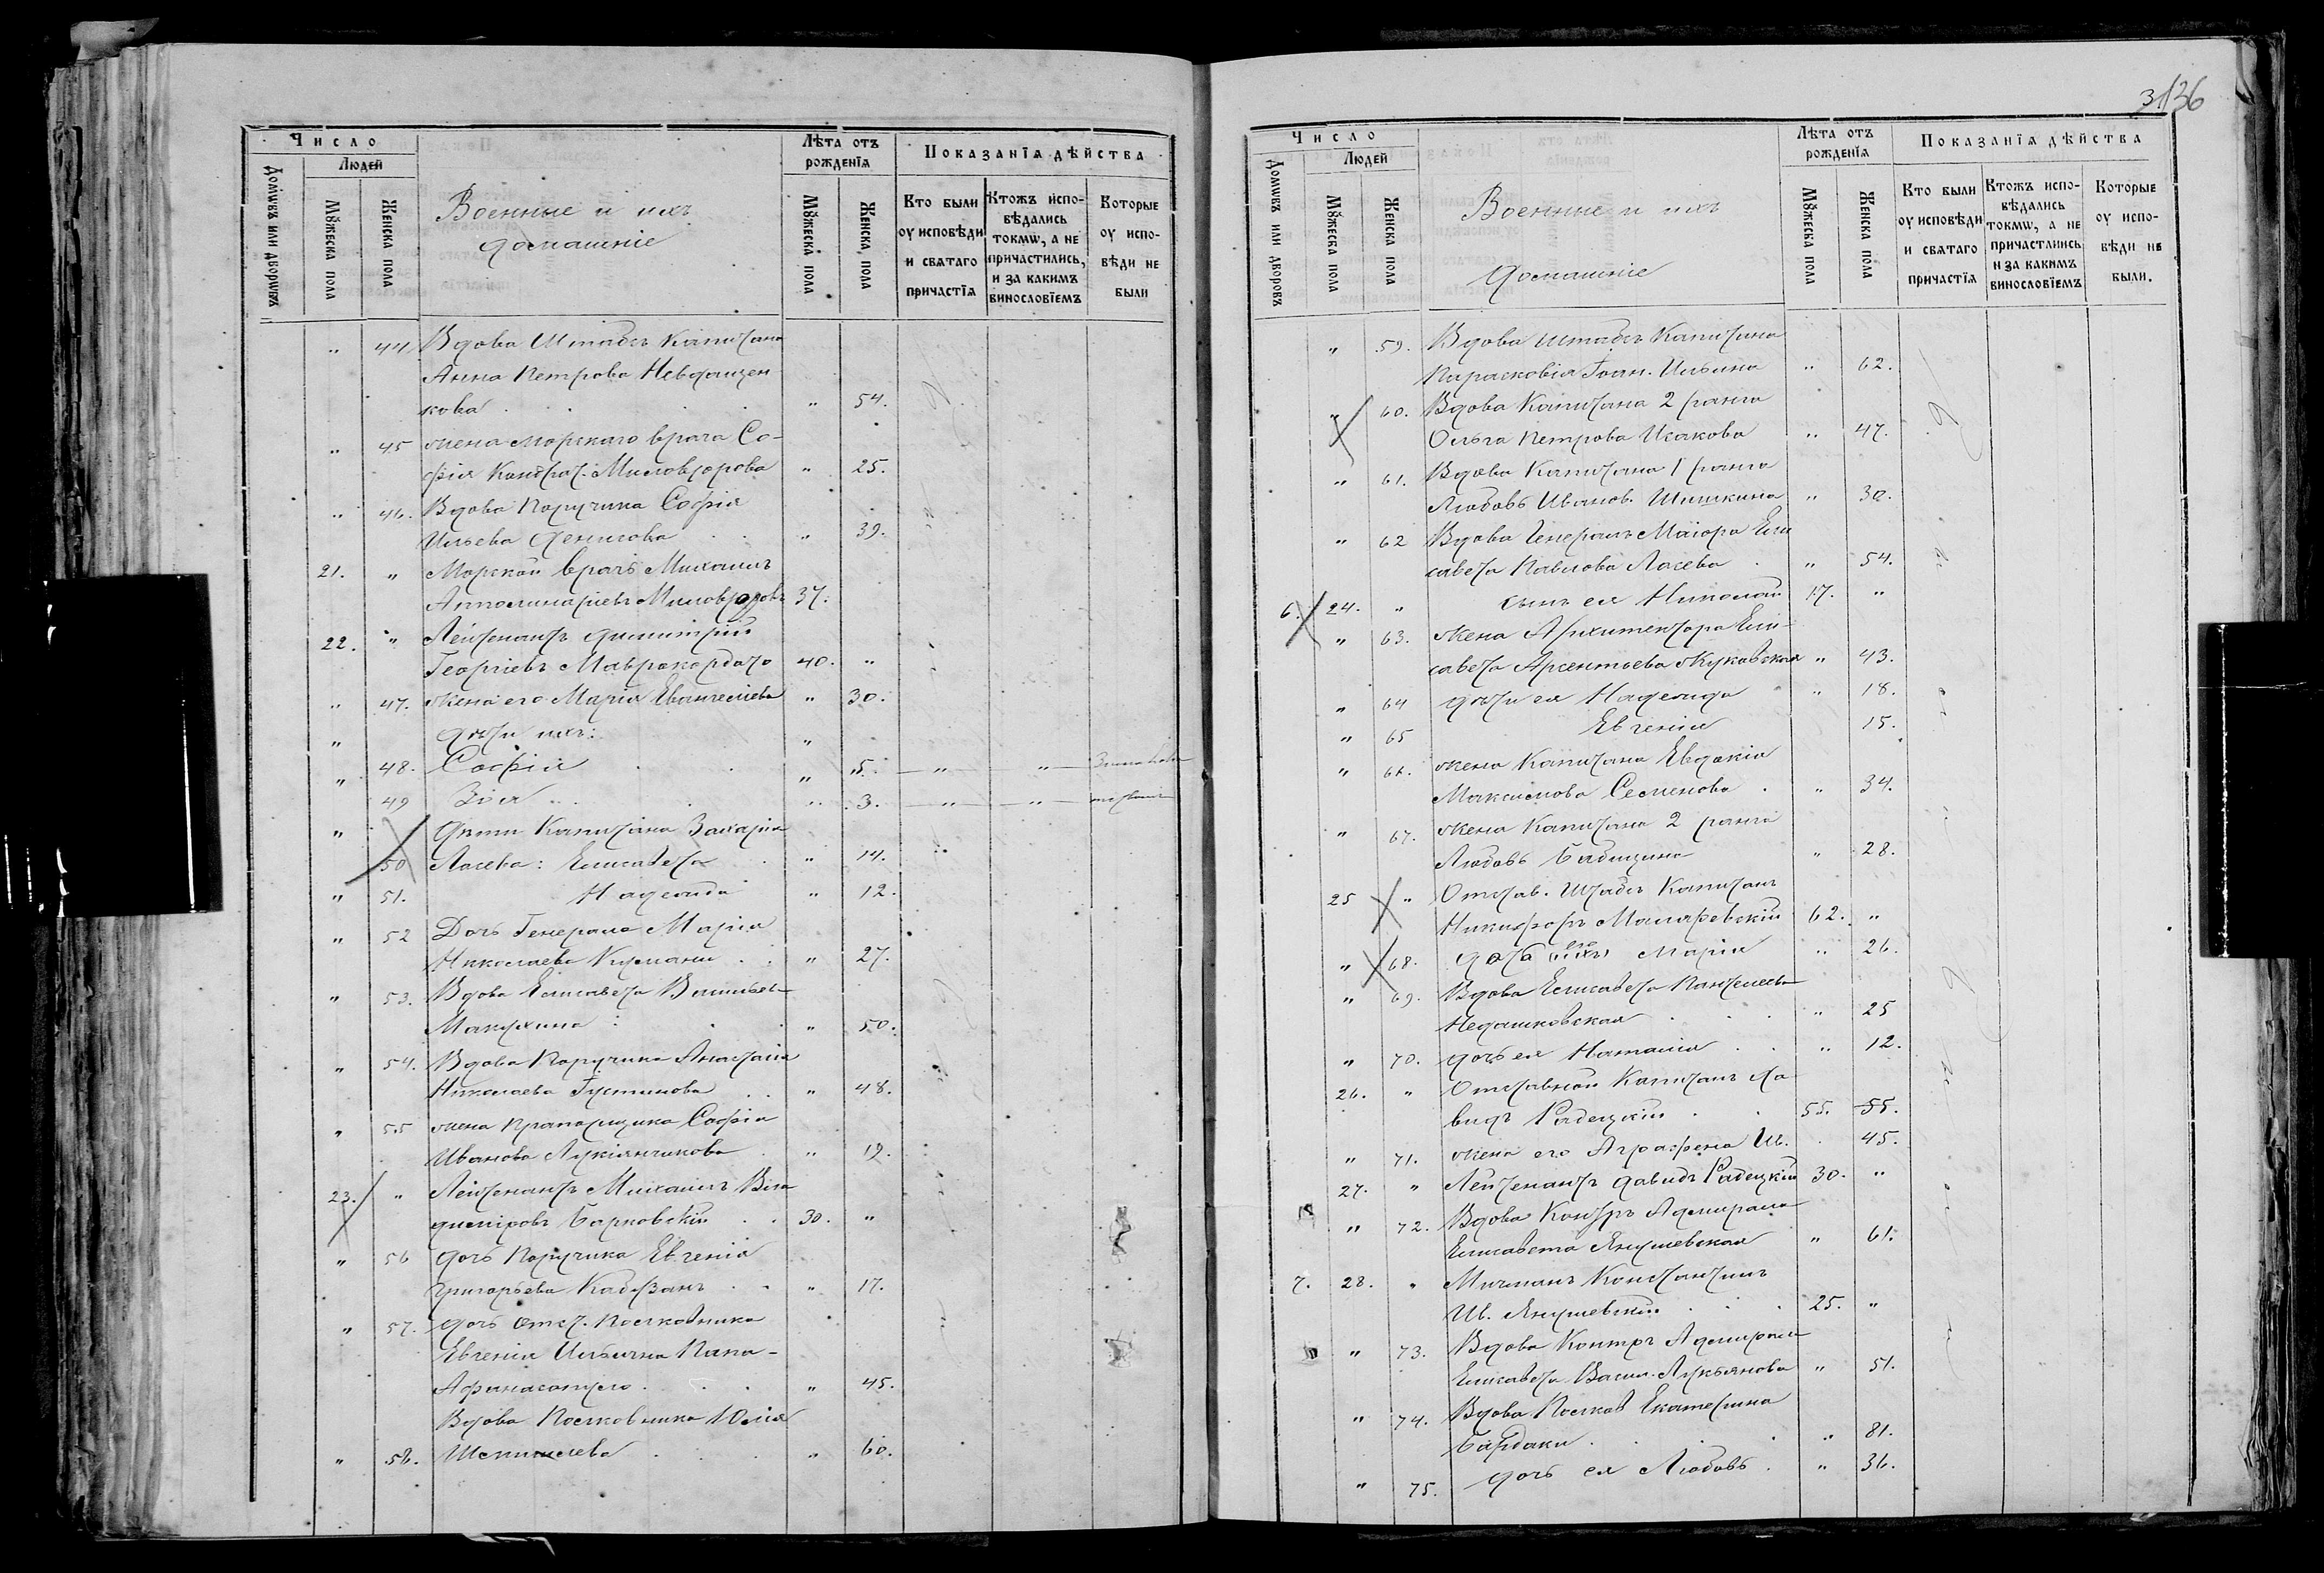 Число
Людей
Домѡвъ или дворѡвъ
Мꙋжеска пола
Женска пола
Военные и ихъ
домашніе
Лѣта отъ
рожденїѧ
Мꙋжеска пола
Женска пола
Показанїѧ дѣйства
Кто были
оу исповѣди
и свѧтаго
причастїѧ
Ктожъ испо-
вѣдались
токмѡ, а не
причастились,
и за какимъ
винословїемъ
Которые
оу испо-
вѣди не
были
" 44 Вдова Штабсъ Капитана
Анна Петрова Невдащен
кова . " 54.
" 45 жена Морскаго врача Со-
фія Кондрат. Миловзорова " 25.
" 46. Вдова Поручика Софія
Ильева Денисова " 39.
21. " Морской врачъ Михаилъ
Апполинаріевъ Миловзоровъ 37.
22. " Лейтенантъ Димитрій
Георгіевъ Маврокордато 40. "
" 47. жена его Марія Евангелиева " 30.
" дѣти ихъ: "
" 48. Софія " 5. " "
49 Зоя " 3. " "
" Дѣти Капитана Захарія
50 Лосева: Елисавета " 14.
" 51. Надежда " 12.
" 52 Дочь Генерала Марія
Николаева Кумани " 27.
" 53. Вдова Елисавета Васильев
Макухина " 50.
" 54. Вдова Поручика Анастасія
Николаева Густинова " 48.
" 55 жена Прапорщика Софія
Иванова Лукіянчикова " 19.
23. " Лейтенантъ Михаилъ Вла
диміровъ Барковскій 30. "
" 56 дочь Поручика Евгенія
Григорьева Кабузанъ " 17.
" 57. дочь отст. Полковника
Евгенія Ильична Папа-
Афанасопуло " 45.
Вдова Полковника Юлія
" 58. Шепилева " 60.
31/36
Число
Людей
Домѡвъ или дворовъ
Мꙋжеска пола
Женска пола
Военные и ихъ
домашніе
Лѣта отъ
рожденїѧ
Мꙋжеска пола
Женска пола
Показанїѧ дѣйства
Кто были
оу исповѣди
и свѧтаго
причастїѧ
Ктожъ испо-
вѣдались
токмѡ, а не
причастились
и за какимъ
винословїемъ
Которые
оу испо-
вѣди не
были.
" 59. Вдова Штабсъ Капитана
Парасковія Іоан. Ильина " 62.
" 60. Вдова Капитана 2 ранга
Ольга Петрова Исакова " 47.
" 61. Вдова Капитана 1 ранга
Любовь Иванов. Шишкина " 30.
" 62 Вдова Генералъ Маіора Ели
савета Павлова Лосева " 54.
6. 24. " сынъ ея Николай 17. "
" 63. жена Архитектора Ели-
савета Арсентьева Жуковская " 43.
" 64 дѣти ея Надежда " 18.
" 65 Евгенія 15.
" 66. жена Капитана Евдокія
Максимова Семенова " 34.
" 67. жена Капитана 2 ранга
Любовь Бабицина " 28.
25 " Отстав. Штабсъ Капитанъ
Никифоръ Маляревскій 62. "
" 68. его Марія " 26.
" 69. Вдова Елисавета Пантелеева
Недашковская " 25
" 70. дочь ея Наталія " 12.
26. " Отставной Капитанъ Да
видъ Радецкій 55. 55.
" 71. жена его Аграфена Ив. 45.
27. " Лейтенантъ Давидъ Радецкій 30. "
" 72. Вдова Контръ Адмирала
Елисавета Янушевская " 61.
7. 28. " Мичманъ Константинъ
Ив. Янушевскій 25. "
" 73. Вдова Контръ Адмирала
Елисавета Васил. Лукьянова " 51.
" 74. Вдова Полков Екатерина
Бардаки " 81.
" 75. дочь ея Любовь " 36.